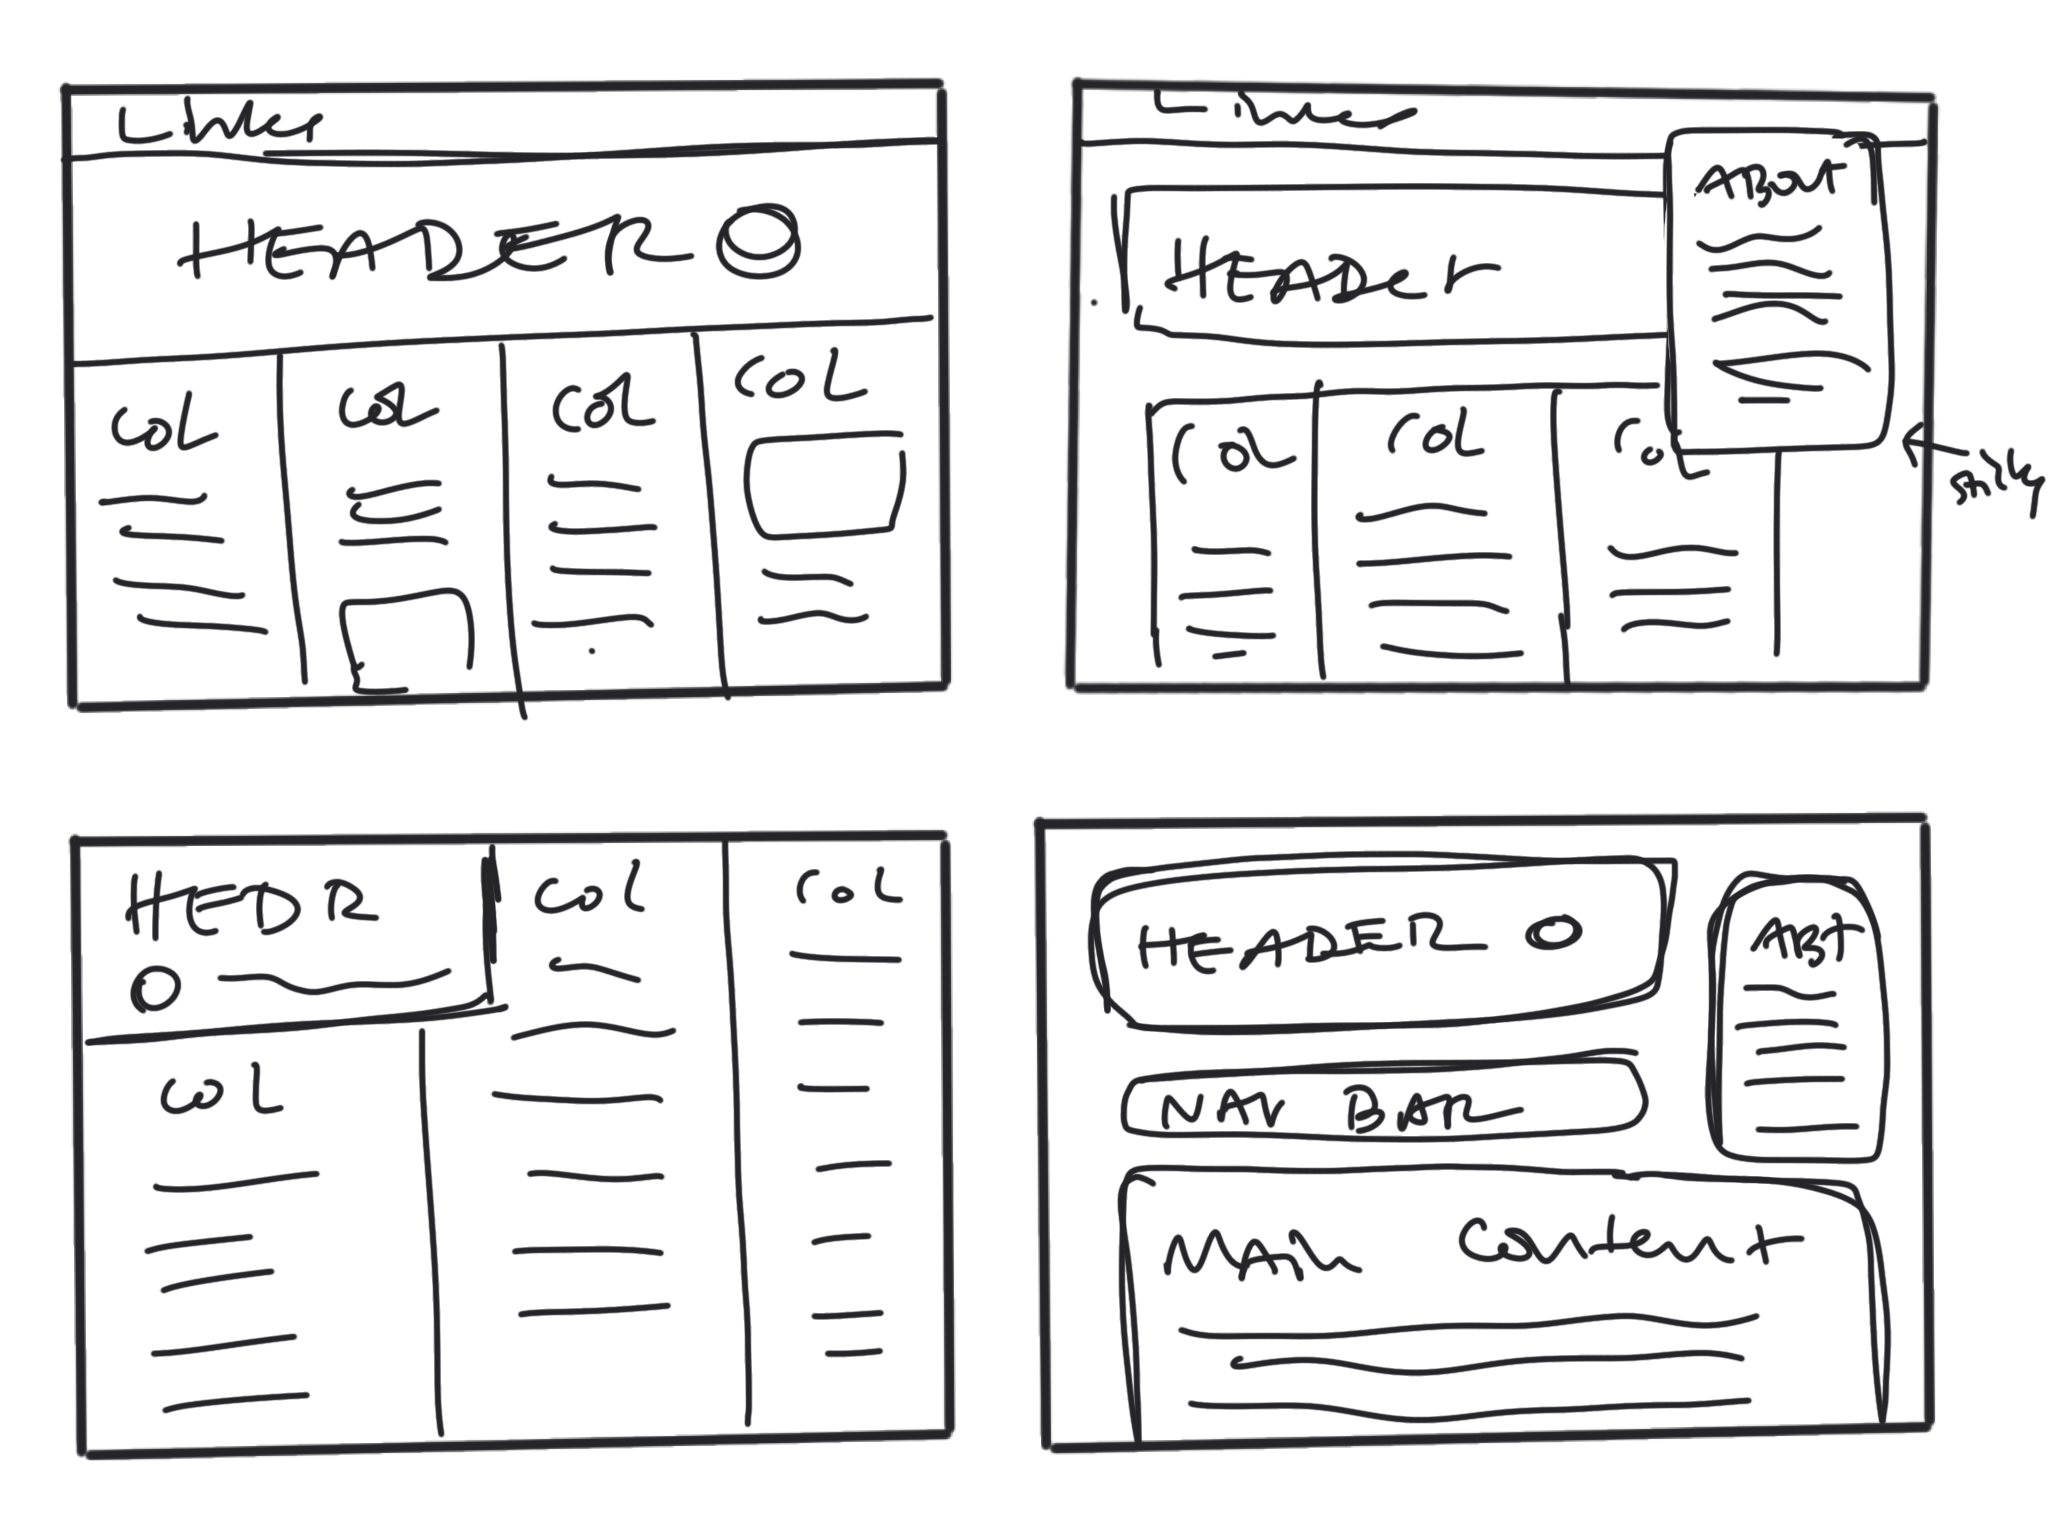 Links
HEADER
COL
COL
COL
COL
Links
ABOUT
HEADer
COL
COL
COL
sticky
HEDR
COL
COL
COL
HEADER
ABT
NAV BAR
MAin Content